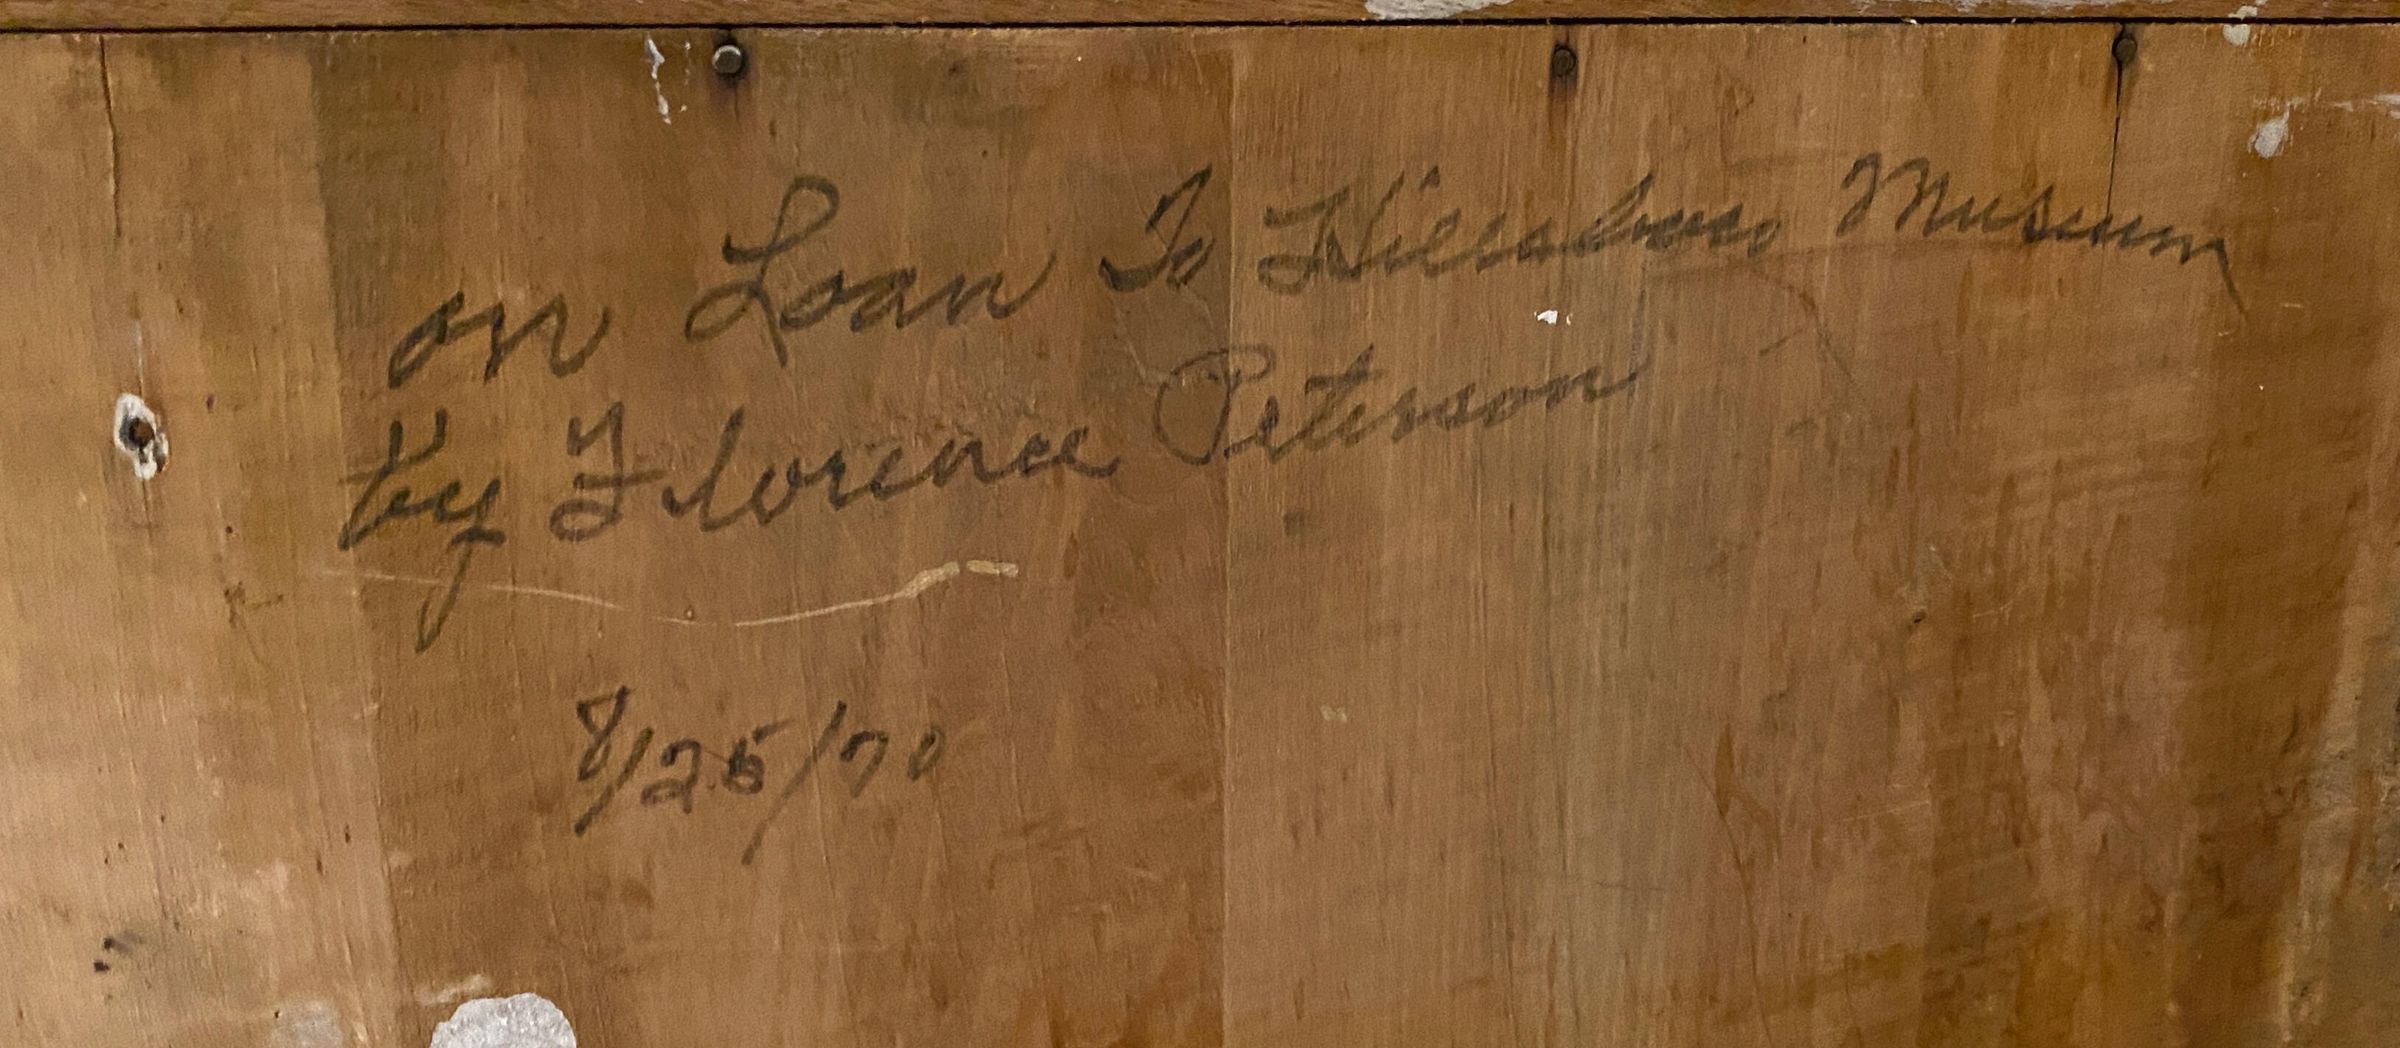 on Loan To Hillsboro Museum
by Florence Peterson
8/25/70